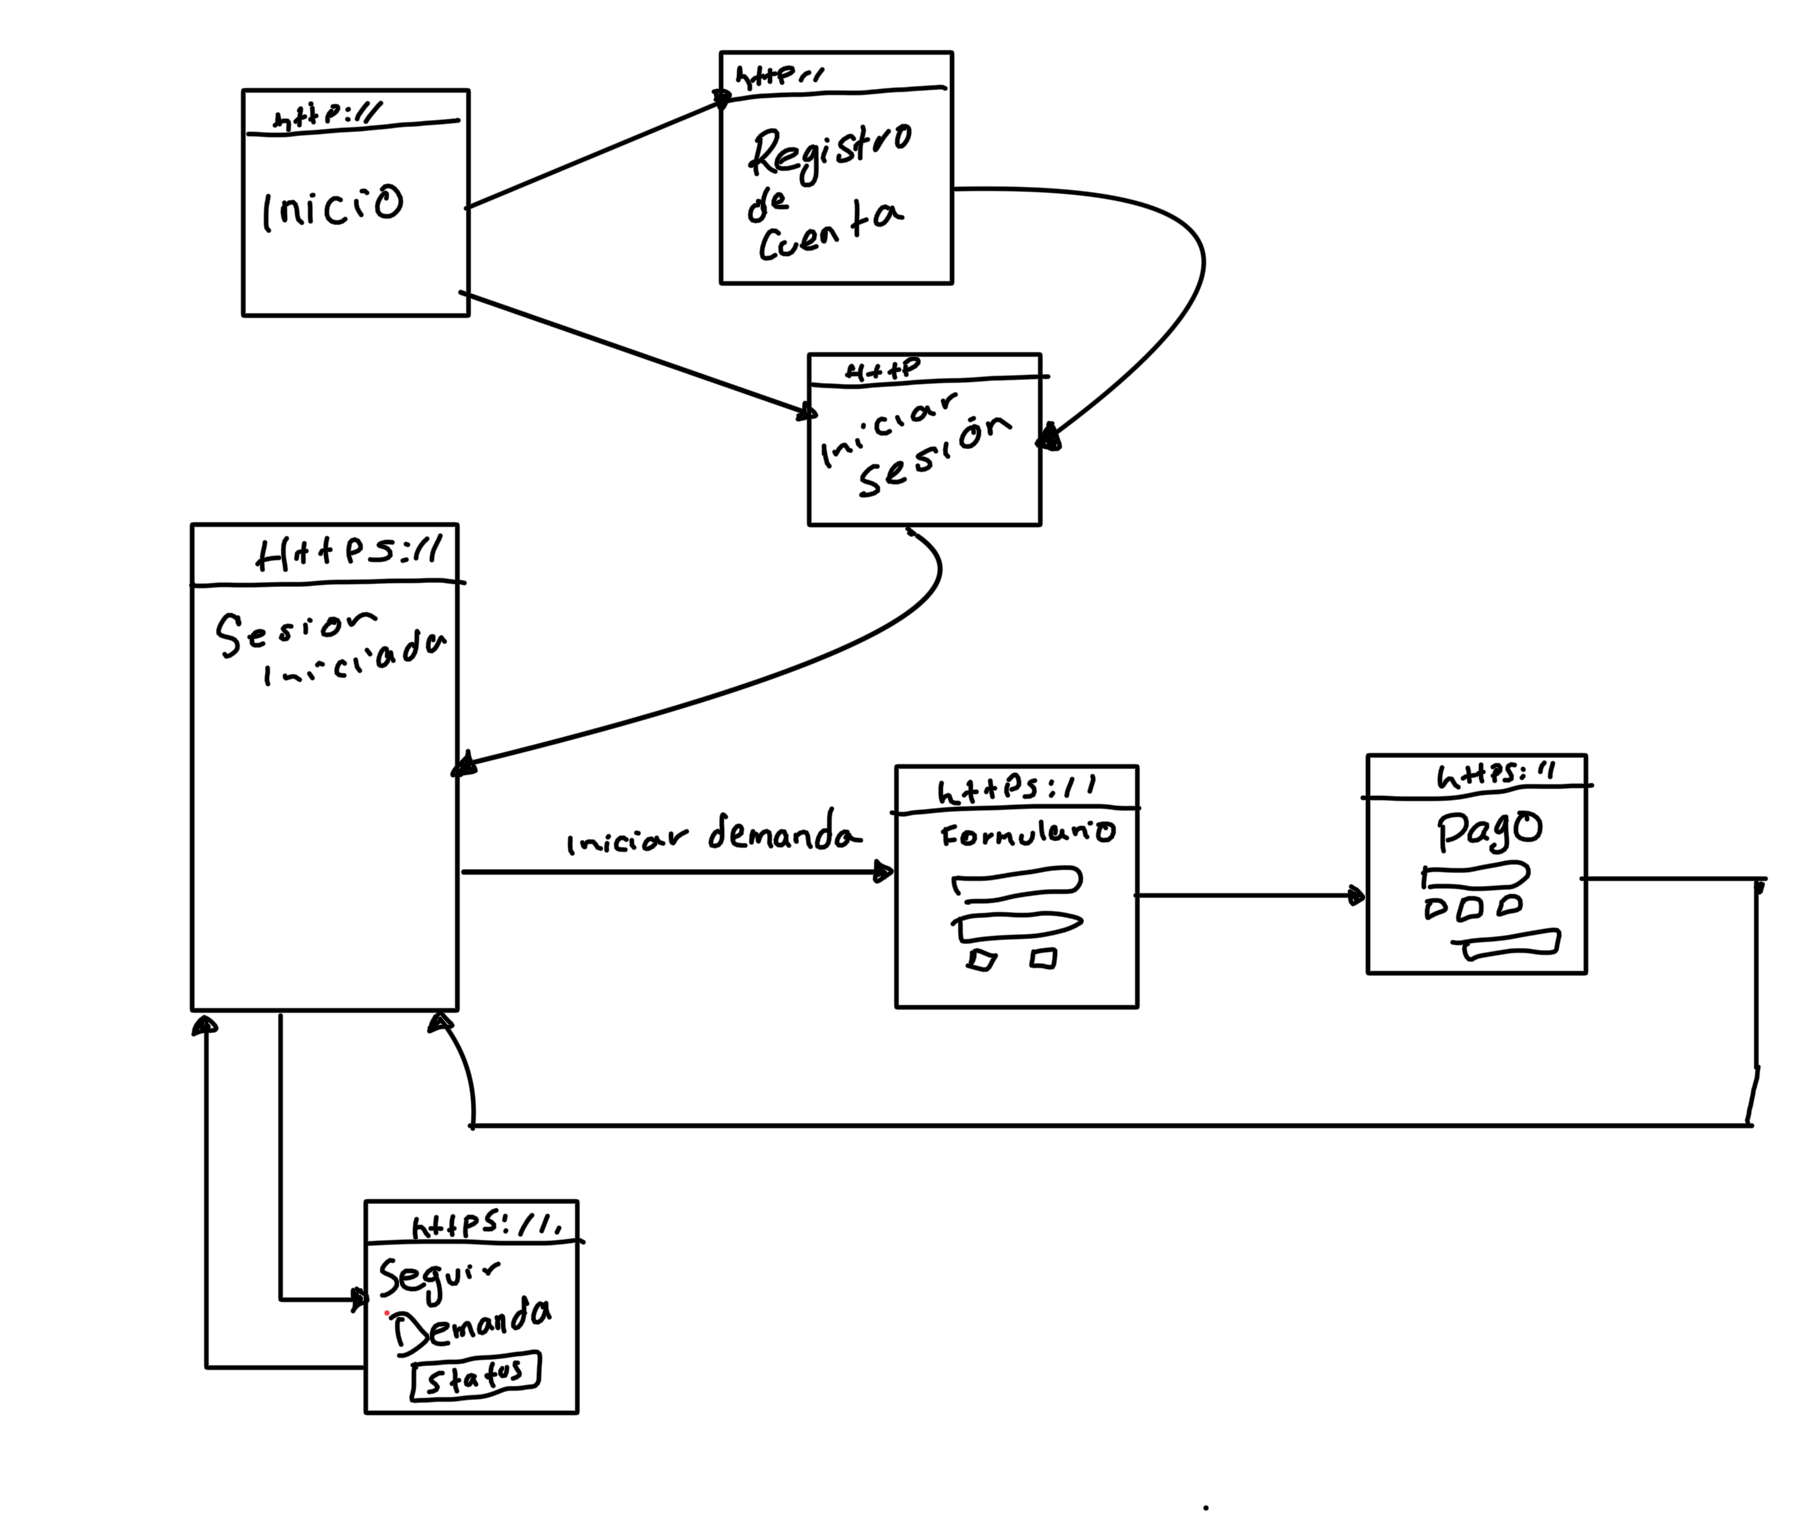 http://
Inicio
http//
Registro
de
Cuenta
Http
Iniciar
Sesión
Https://
Sesion
Iniciada
Iniciar demanda
https://
Formulario
https://
Pago
https://.
Seguir
Demanda
Status